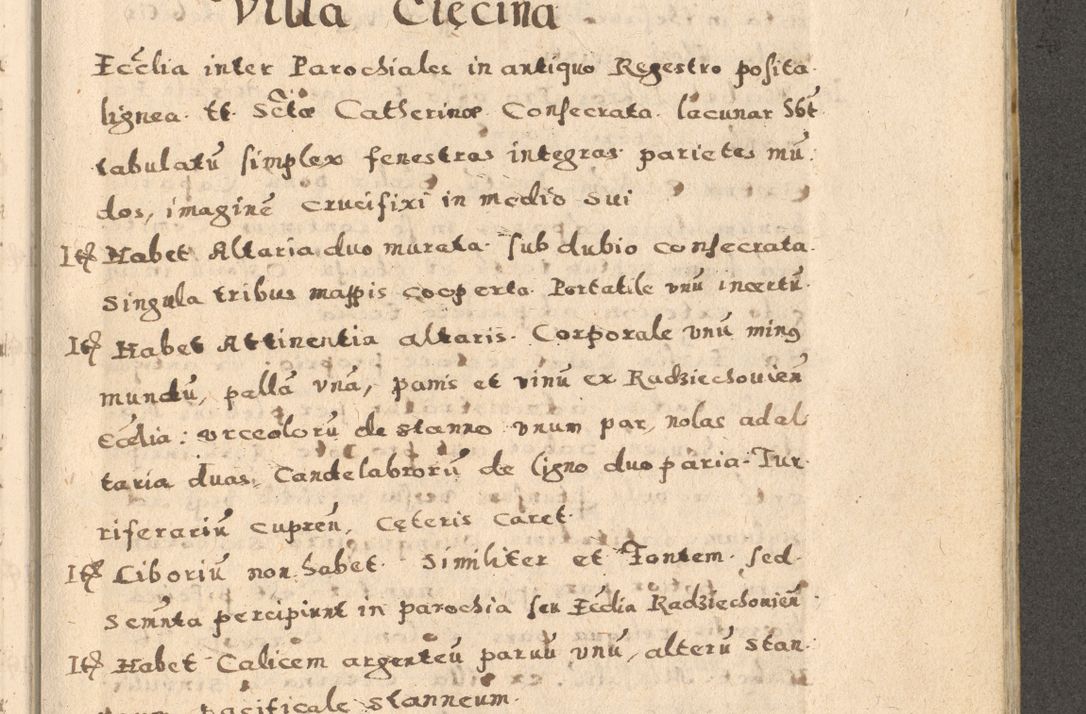 Villa Cięcina
Eccłlia inter Parochiales in antiquo Regestro posita
lignea. tt. Sctæ Catherinæ Consecrata. lacunar
tabulatū simplex fenestras integras parietes mū:
dos, imaginē crucifixi in medio sui
Itę Habet Altaria duo murata. sub dubio consecrata.
Singula tribus mappis cooperta. Portatile vnū incertū.
Itę Habet Attinentia altaris. Corporale vnū ming
mundū, pallā vnā, panis et vinū ex Radziechouień
Ecclia: vrceolorū de stanno vnum par, nolas ad al
taria duas, Candelabrorū de ligno duo paria. Tur
riferariū cupreū, Cęteris caret
Itę Ciboriū non habet. Similiter et Fontem. sed.
Semnta percipiunt in parochia seu Ecclia Radziechouień.
Itę Habet Calicem argenteū paruū vnū, alterū Stan:
pacificale stanneum.